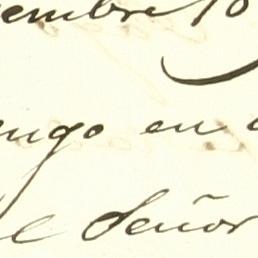 embre 10
engo en
el Señor